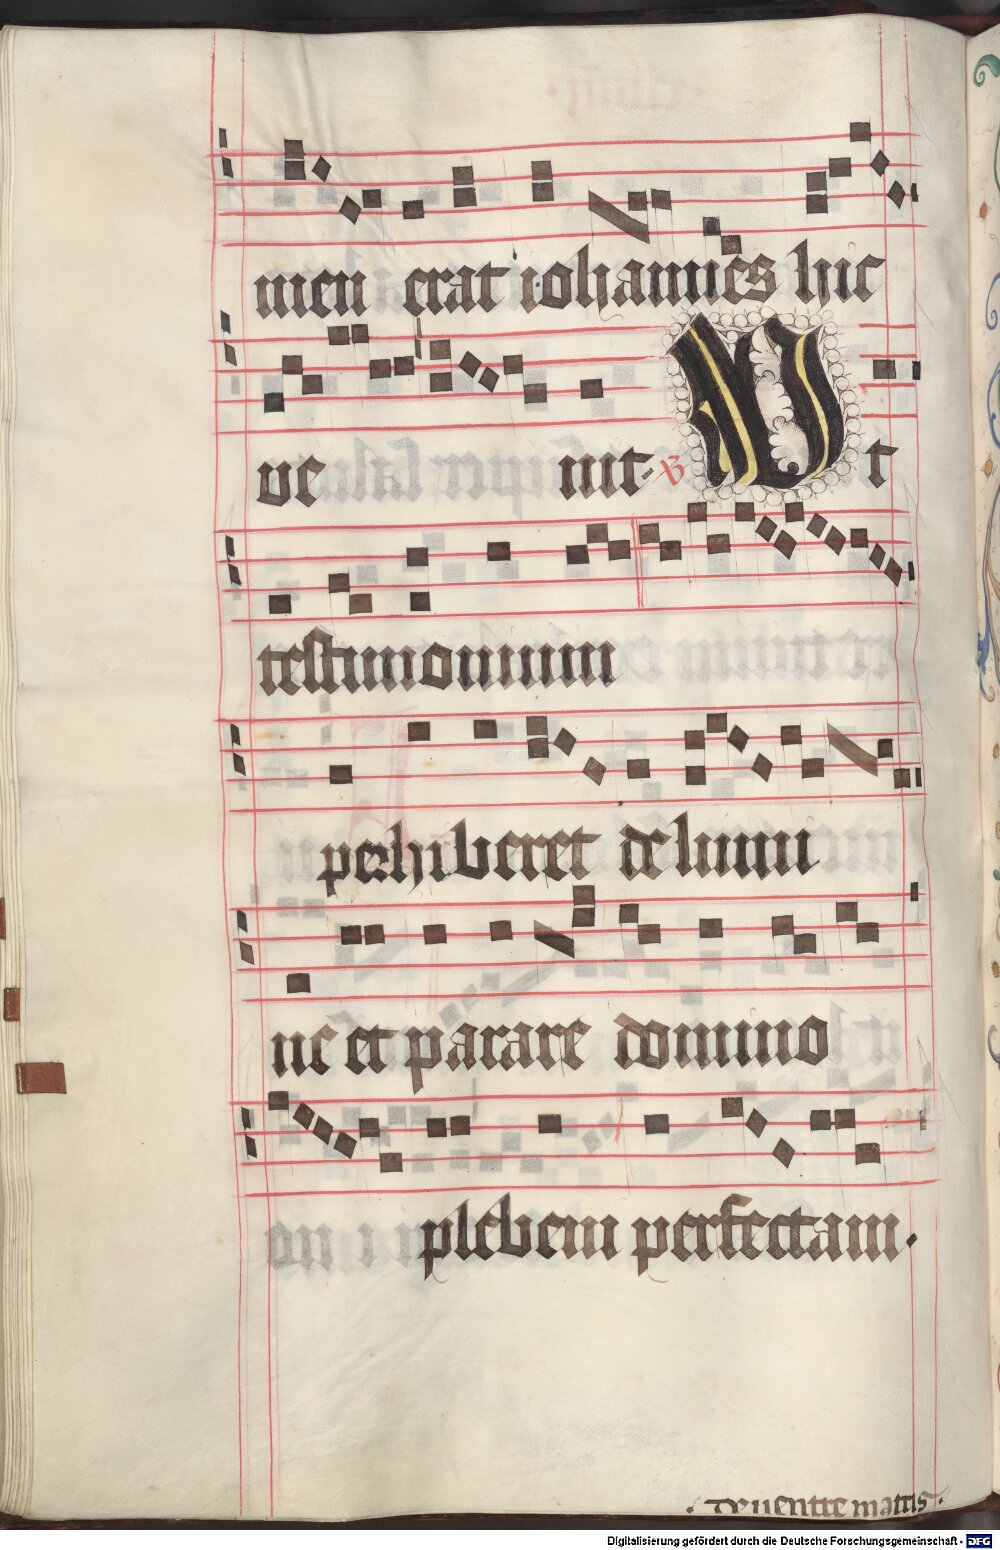 men erat iohannes hic
ve nit ℣ Ut
testimonium
perhiberet de lumi
ne et parare domino
plebem perfectam.
· De uentre matris ·
Digitalisierung gefördert durch die Deutsche Forschungsgemeinschaft - DFG